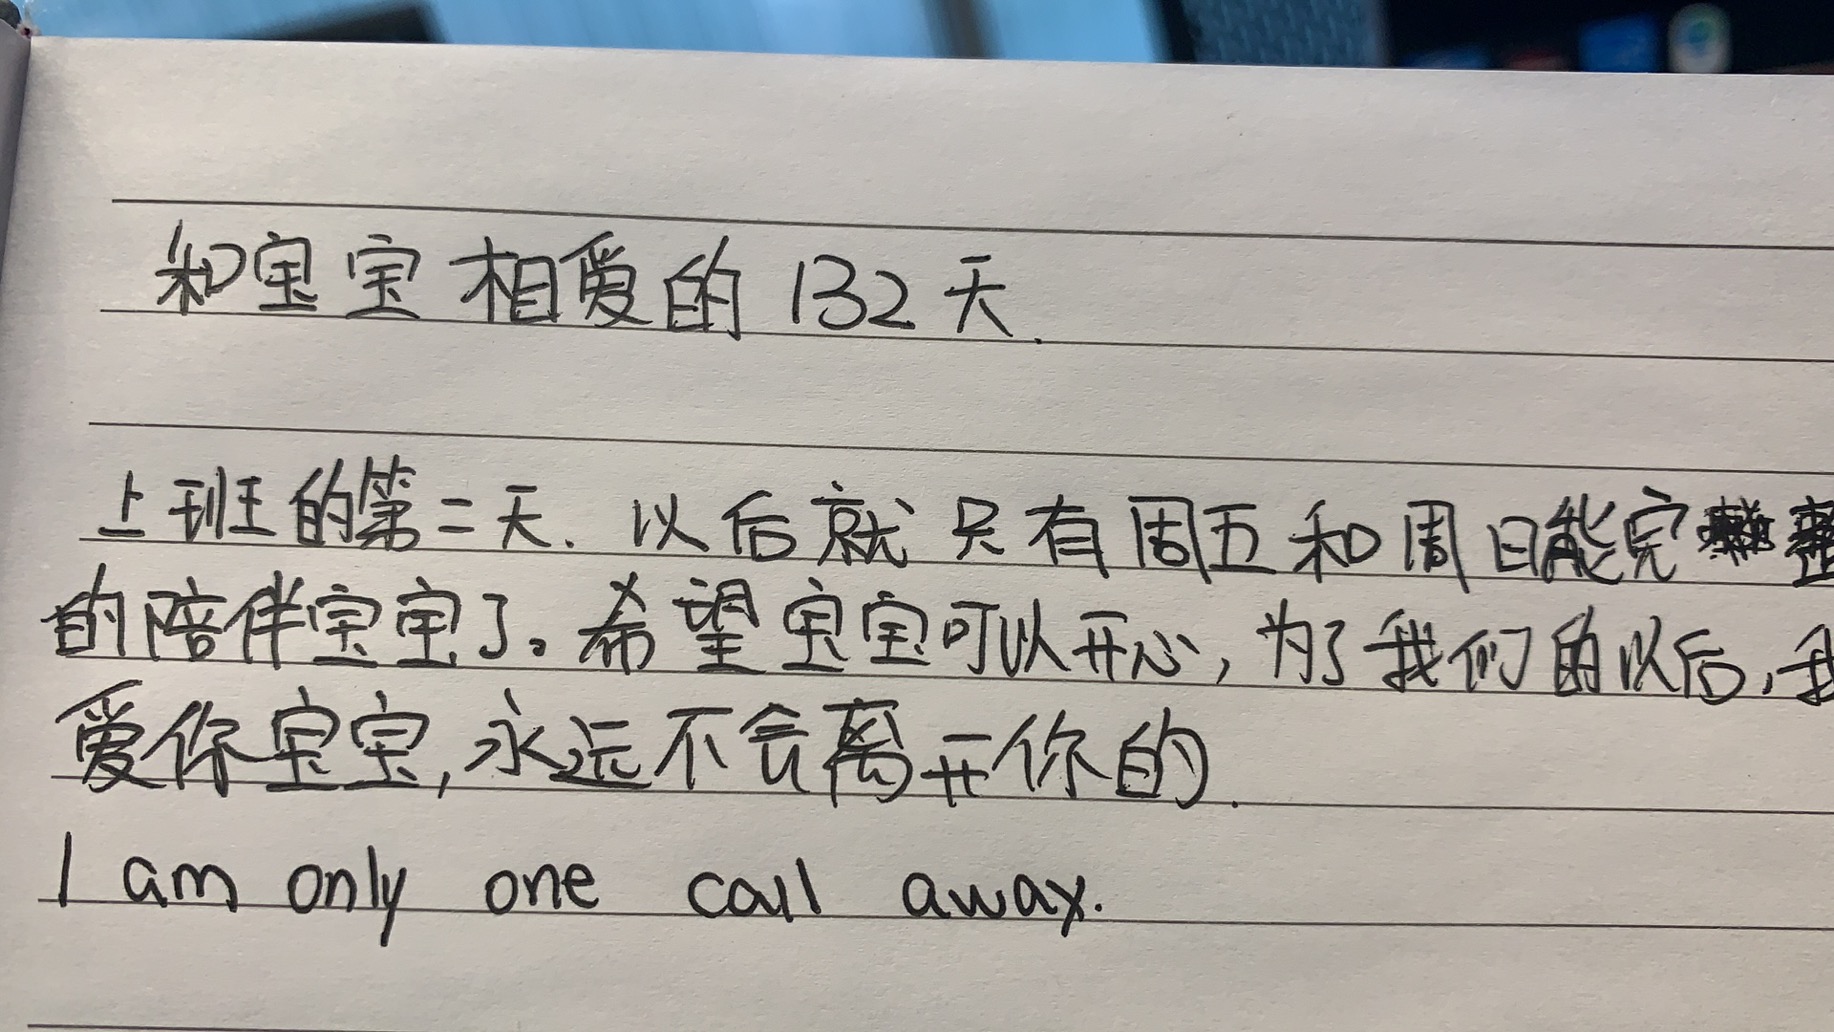 和宝宝相爱的132天.
上班的第二天.以后就只有周五和周日能完整
的陪伴宝宝了。希望宝宝可以开心,为了我们的以后,我
爱你宝宝,永远不会离开你的.
I am only one call away.